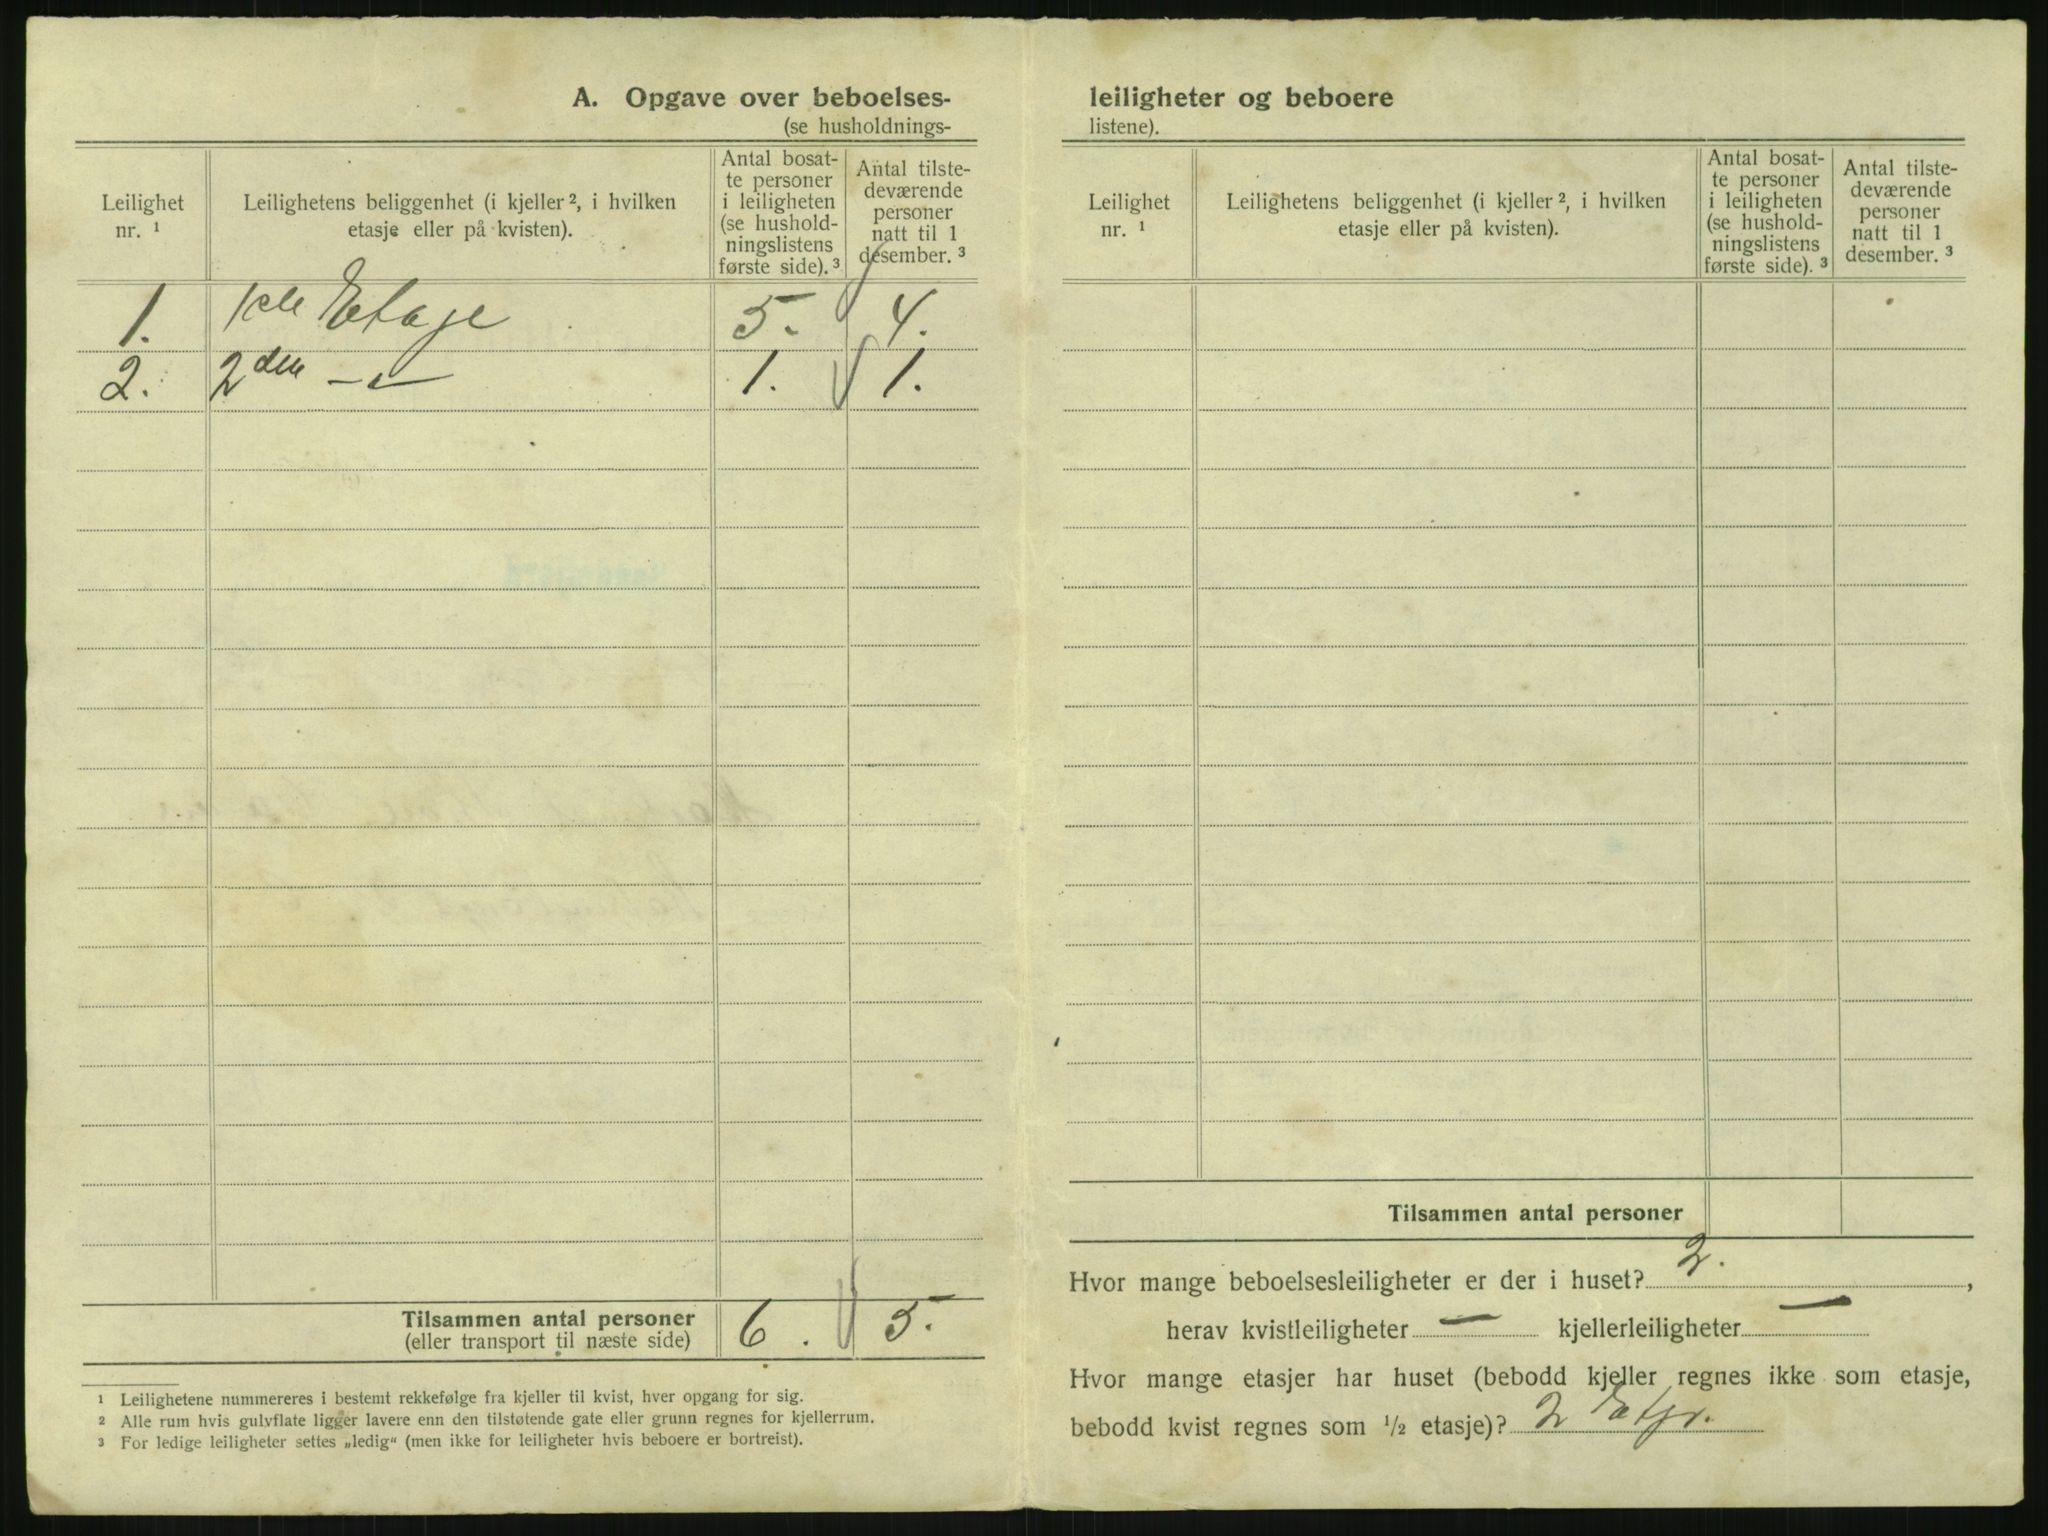 A. Opgave over beboelses-
(se husholdnings-
Leilighet
nr. ¹
Leilighetens beliggenhet (i kjeller ², i hvilken
etasje eller på kvisten).
Antal bosat-
te personer
i leiligheten
(se hushold-
ningslistens
første side). ³
Antal tilste-
deværende
personer
natt til 1
desember. ³
1. 1ste Etage 5. 4.
2. 2den — 1. 1.
Tilsammen antal personer 6. 5.
(eller transport til næste side)
¹ Leilighetene nummereres i bestemt rekkefølge fra kjeller til kvist, hver opgang for sig.
² Alle rum hvis gulvflate ligger lavere enn den tilstøtende gate eller grunn regnes for kjellerrum.
³ For ledige leiligheter settes „ledig“ (men ikke for leiligheter hvis beboere er bortreist).
leiligheter og beboere
listene).
Leilighet
nr. ¹
Leilighetens beliggenhet (i kjeller ², i hvilken
etasje eller på kvisten).
Antal bosat-
te personer
i leiligheten
(se hushold-
ningslistens
første side). ³
Antal tilste-
deværende
personer
natt til 1
desember. ³
Tilsammen antal personer
Hvor mange beboelsesleiligheter er der i huset? 2.,
herav kvistleiligheter — kjellerleiligheter —
Hvor mange etasjer har huset (bebodd kjeller regnes ikke som etasje,
bebodd kvist regnes som ½ etasje)? 2 Etjr.